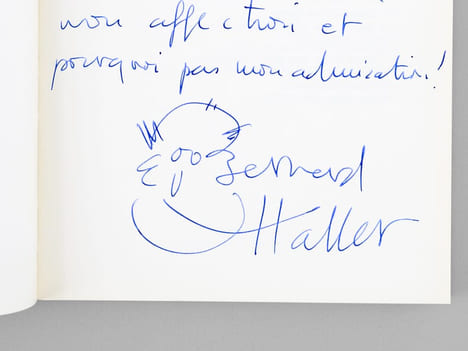 mon affection et
pourquoi pas mon admiration!
Bernard
Haller